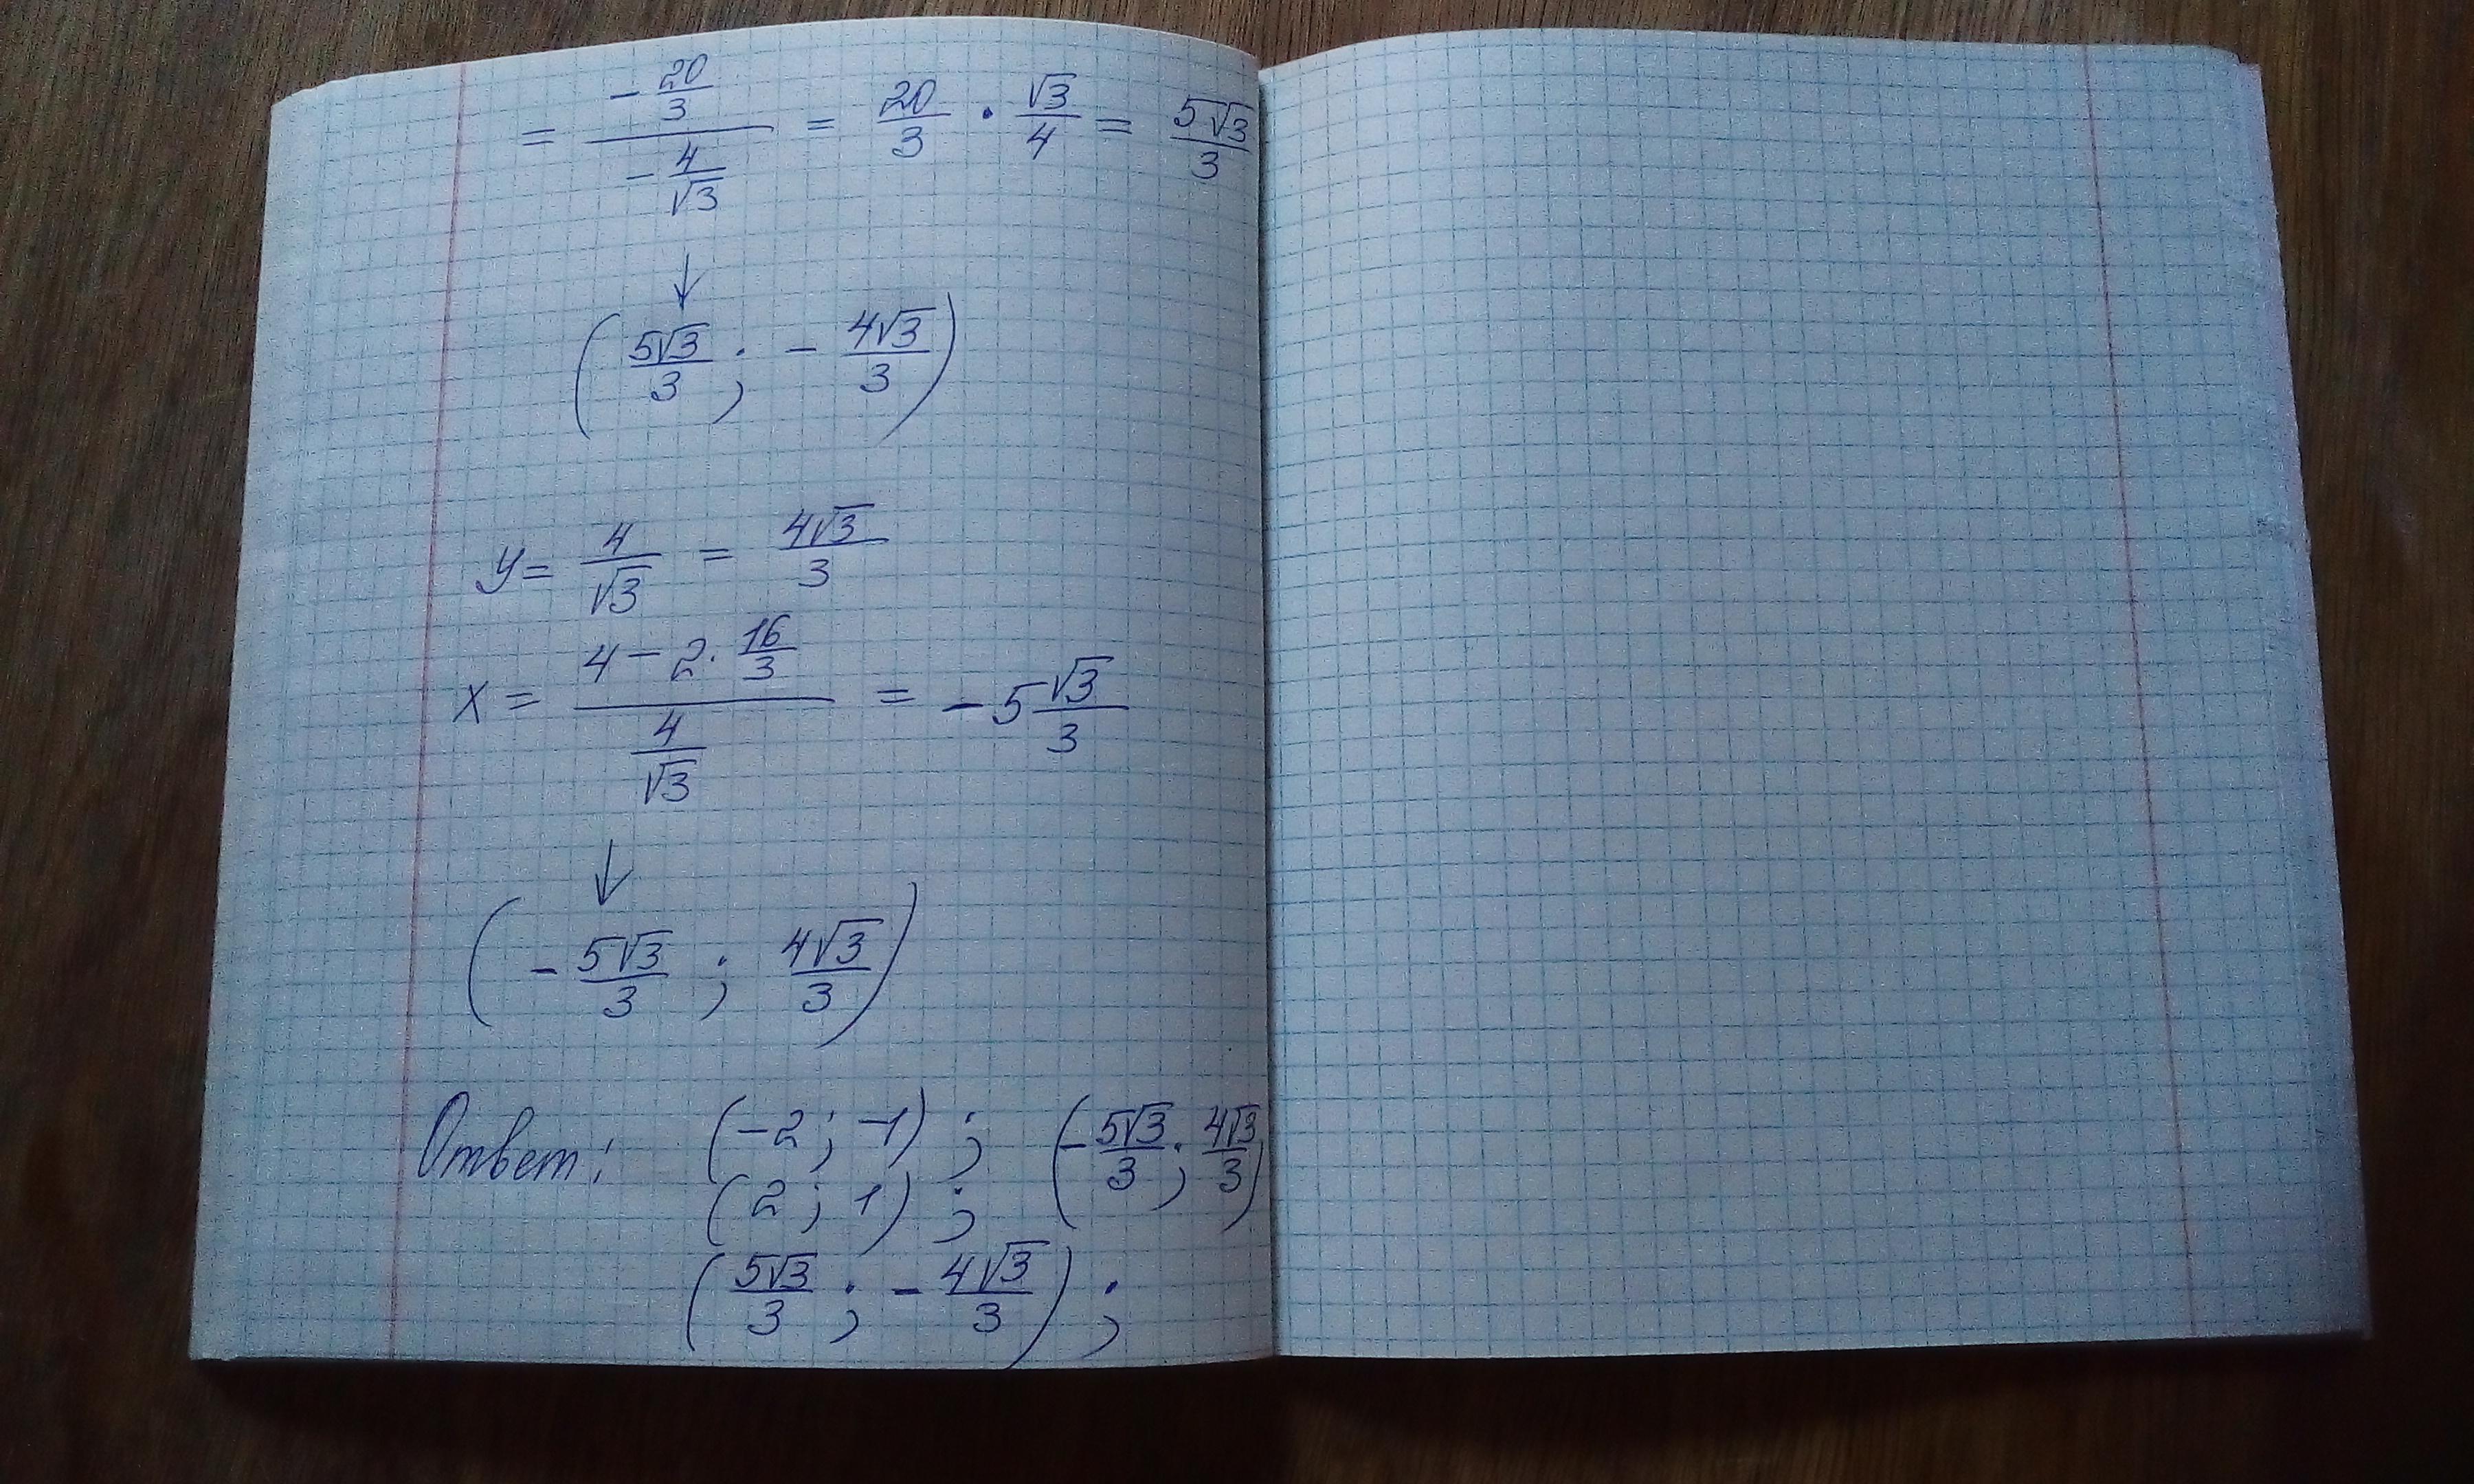 = (-20/3)/(-4/√3) = 20/3 · √3/4 = 5√3/3
↓
(5√3/3 ; -4√3/3)
y = 4/√3 = 4√3/3
x = (4 - 2 · 16/3)/(4/√3) = -5 √3/3
↓
(-5√3/3 ; 4√3/3)
Ответ: (-2 ; -1) ; (-5√3/3 ; 4√3/3)
(2 ; 1) ;
(5√3/3 ; -4√3/3) ;